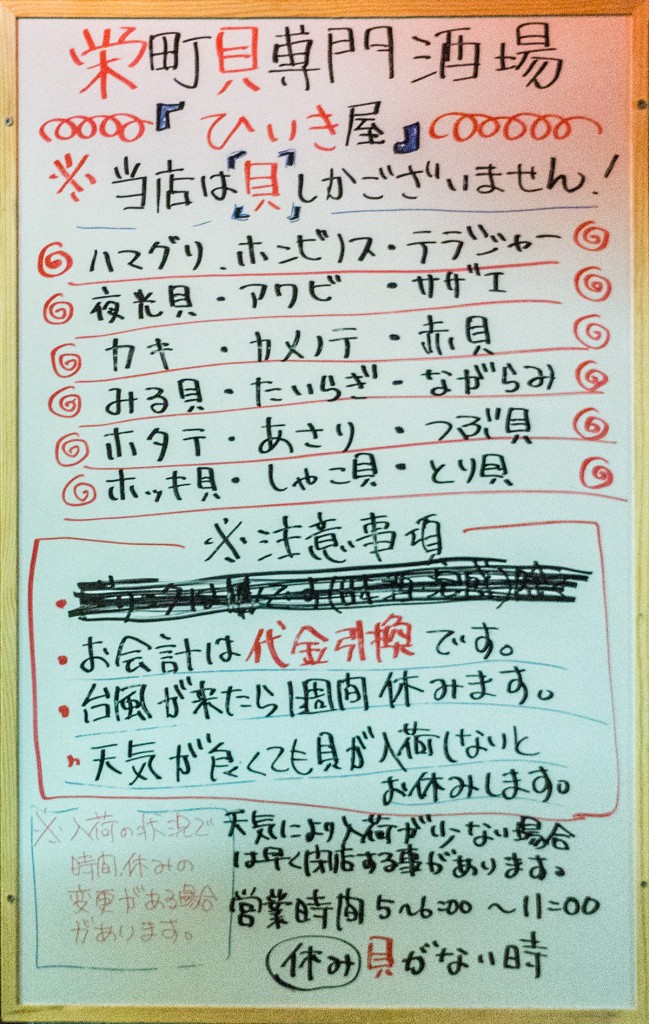 栄町貝専門酒場
『ひいき屋』
※当店は「貝」しかございません!
ハマグリ、ホンビノス・テラジャー
夜光貝・アワビ・サザエ
カキ・カメノテ・赤貝
みる貝・たいらぎ・ながらみ
ホタテ・あさり・つぶ貝
ホッキ貝・しゃこ貝・とり貝
※注意事項
・お会計は代金引換です。
・台風が来たら1週間休みます。
・天気が良くても貝が入荷しないと
お休みします。
※入荷の状況で
時間、休みの
変更がある場合
があります。
天気により入荷が少ない場合
は早く閉店する事があります。
営業時間5~6:00~11:00
休み 貝がない時